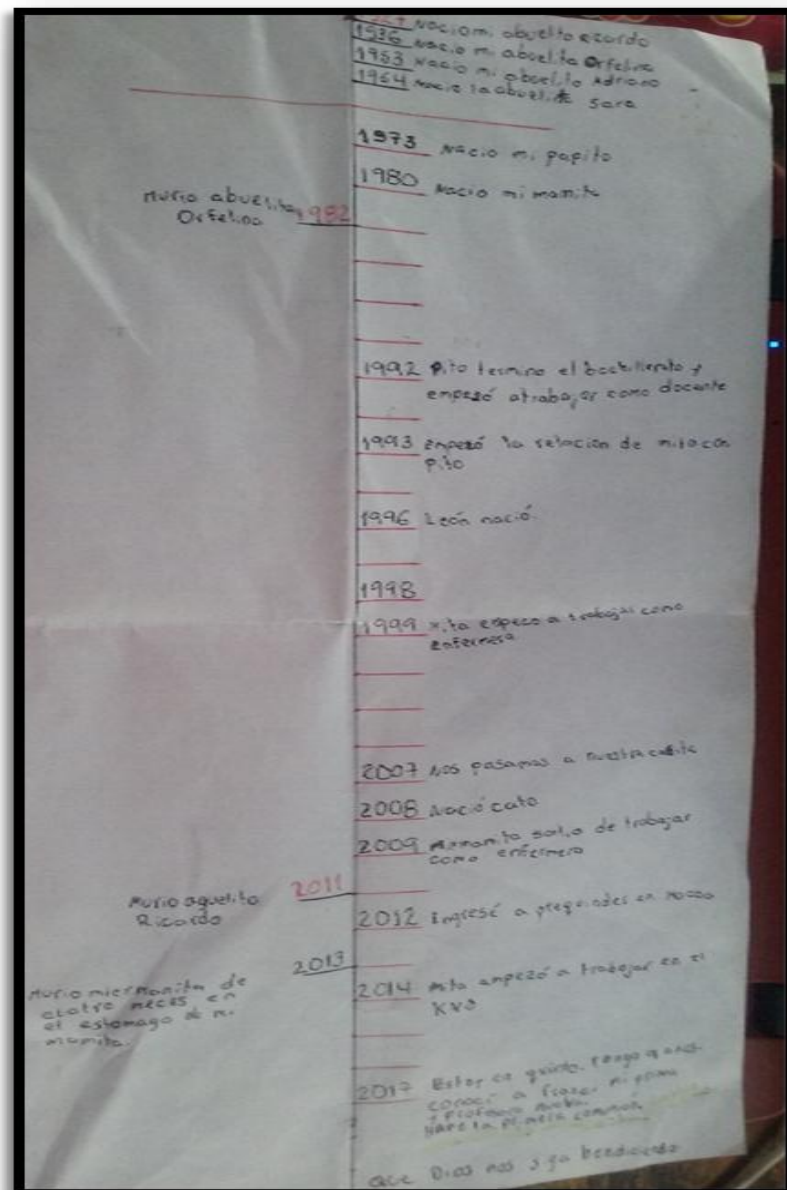 Nacio mi abuelito
1936 Nacio mi abuelita Orfelina
1953 Nacio mi abuelito Adriano
1964 Nacio la abuelita Sara
1973 Nacio mi papito
1980 Nacio mi mamita
Murio abuelita 1982
Orfelina
1992 Pito termino el bachillerato y
empezó atrabajar como docente
1993 Empezó la relación de mita con
Pito
1996 León nació.
1998
1999 Mita empezo a trabajar como
enfermera
2007 Nos pasamos a nuestra casita
2008 Nació cato
2009 Mamita salio de trabajar
como enfermera
2011
Murio aguelito
Ricardo
2012 Ingresé a prequinder en
2013
Murio miermanita de
cuatro meces en
el estomago de mi
mamita.
2014 Mita empezó a trabajar en el
2017 Estoy en quinto, tengo 9 años
conocí a mi prima
Haré la primera comunión
Que Dios nos siga bendiciendo